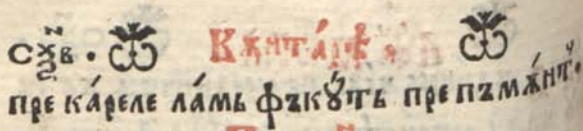 сѯ҃в. Кѫнта́рѣ.
пре ка́реле ла́мь фъкꙋ́ть пре пъмѫ́нтꙋ.